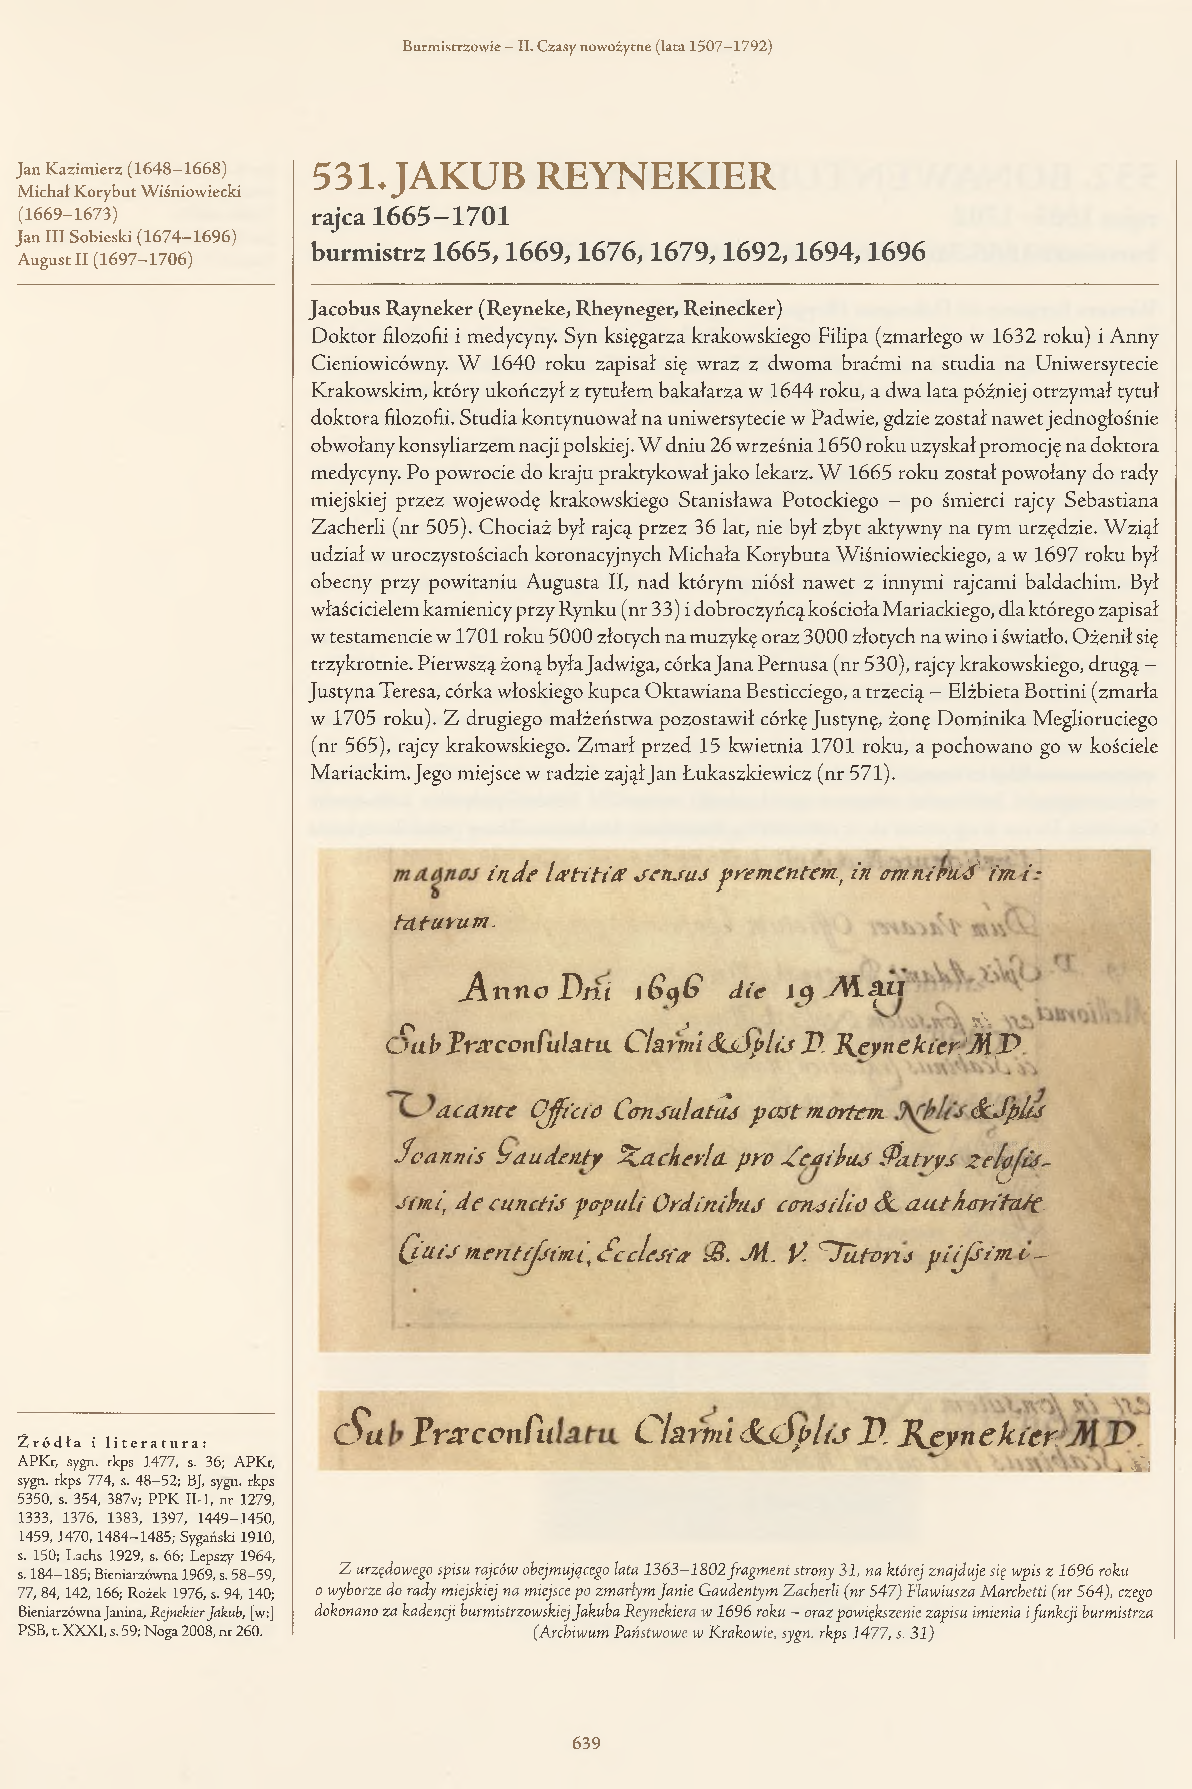 Burmistrzowie – II. Czasy nowożytne (lata 1507–1792)
Jan Kazimierz (1648–1668)
Michał Korybut Wiśniowiecki
(1669–1673)
Jan III Sobieski (1674–1696)
August II (1697–1706)
531. JAKUB REYNEKIER
rajca 1665–1701
burmistrz 1665, 1669, 1676, 1679, 1692, 1694, 1696
Jacobus Rayneker (Reyneke, Rheyneger, Reinecker)
Doktor filozofii i medycyny. Syn księgarza krakowskiego Filipa (zmarłego w 1632 roku) i Anny
Cieniowicówny. W 1640 roku zapisał się wraz z dwoma braćmi na studia na Uniwersytecie
Krakowskim, który ukończył z tytułem bakałarza w 1644 roku, a dwa lata później otrzymał tytuł
doktora filozofii. Studia kontynuował na uniwersytecie w Padwie, gdzie został nawet jednogłośnie
obwołany konsyliarzem nacji polskiej. W dniu 26 września 1650 roku uzyskał promocję na doktora
medycyny. Po powrocie do kraju praktykował jako lekarz. W 1665 roku został powołany do rady
miejskiej przez wojewodę krakowskiego Stanisława Potockiego – po śmierci rajcy Sebastiana
Zacherli (nr 505). Chociaż był rajcą przez 36 lat, nie był zbyt aktywny na tym urzędzie. Wziął
udział w uroczystościach koronacyjnych Michała Korybuta Wiśniowieckiego, a w 1697 roku był
obecny przy powitaniu Augusta II, nad którym niósł nawet z innymi rajcami baldachim. Był
właścicielem kamienicy przy Rynku (nr 33) i dobroczyńcą kościoła Mariackiego, dla którego zapisał
w testamencie w 1701 roku 5000 złotych na muzykę oraz 3000 złotych na wino i światło. Ożenił się
trzykrotnie. Pierwszą żoną była Jadwiga, córka Jana Pernusa (nr 530), rajcy krakowskiego, drugą –
Justyna Teresa, córka włoskiego kupca Oktawiana Besticciego, a trzecią – Elżbieta Bottini (zmarła
w 1705 roku). Z drugiego małżeństwa pozostawił córkę Justynę, żonę Dominika Meglioruciego
(nr 565), rajcy krakowskiego. Zmarł przed 15 kwietnia 1701 roku, a pochowano go w kościele
Mariackim. Jego miejsce w radzie zajął Jan Łukaszkiewicz (nr 571).
magnos inde lætitiæ sensus prementem, in omnibus imi:
taturum.
Anno Dni 1696 die 19 Maij
Sub Præconsulatu Clarmi & Splis D. Reynekier MD.
Vacante Officio Consulatûs post mortem Noblis & Splis
Joannis Gaudenty Zacherla pro Legibus Patrys zelosis-
simi, de cunctis populi Ordinibus consilio & authoritate
Ciuis meritissimi, Ecclesiæ B. M. V. Tutoris piissimi-
Sub Præconsulatu Clarmi & Splis D. Reynekier MD.
Źródła i literatura:
APKr, sygn. rkps 1477, s. 36; APKr,
sygn. rkps 774, s. 48–52; BJ, sygn. rkps
5350, s. 354, 387v; PPK II-1, nr 1279,
1333, 1376, 1383, 1397, 1449–1450,
1459, 1470, 1484–1485; Sygański 1910,
s. 150; Lachs 1929, s. 66; Lepszy 1964,
s. 184–185; Bieniarzówna 1969, s. 58–59,
77, 84, 142, 166; Rożek 1976, s. 94, 140;
Bieniarzówna Janina, Rejnekier Jakub, [w:]
PSB, t. XXXI, s. 59; Noga 2008, nr 260.
Z urzędowego spisu rajców obejmującego lata 1363–1802 fragment strony 31, na której znajduje się wpis z 1696 roku
o wyborze do rady miejskiej na miejsce po zmarłym Janie Gaudentym Zacherli (nr 547) Flawiusza Marchetti (nr 564), czego
dokonano za kadencji burmistrzowskiej Jakuba Reynekiera w 1696 roku – oraz powiększenie zapisu imienia i funkcji burmistrza
(Archiwum Państwowe w Krakowie, sygn. rkps 1477, s. 31)
639